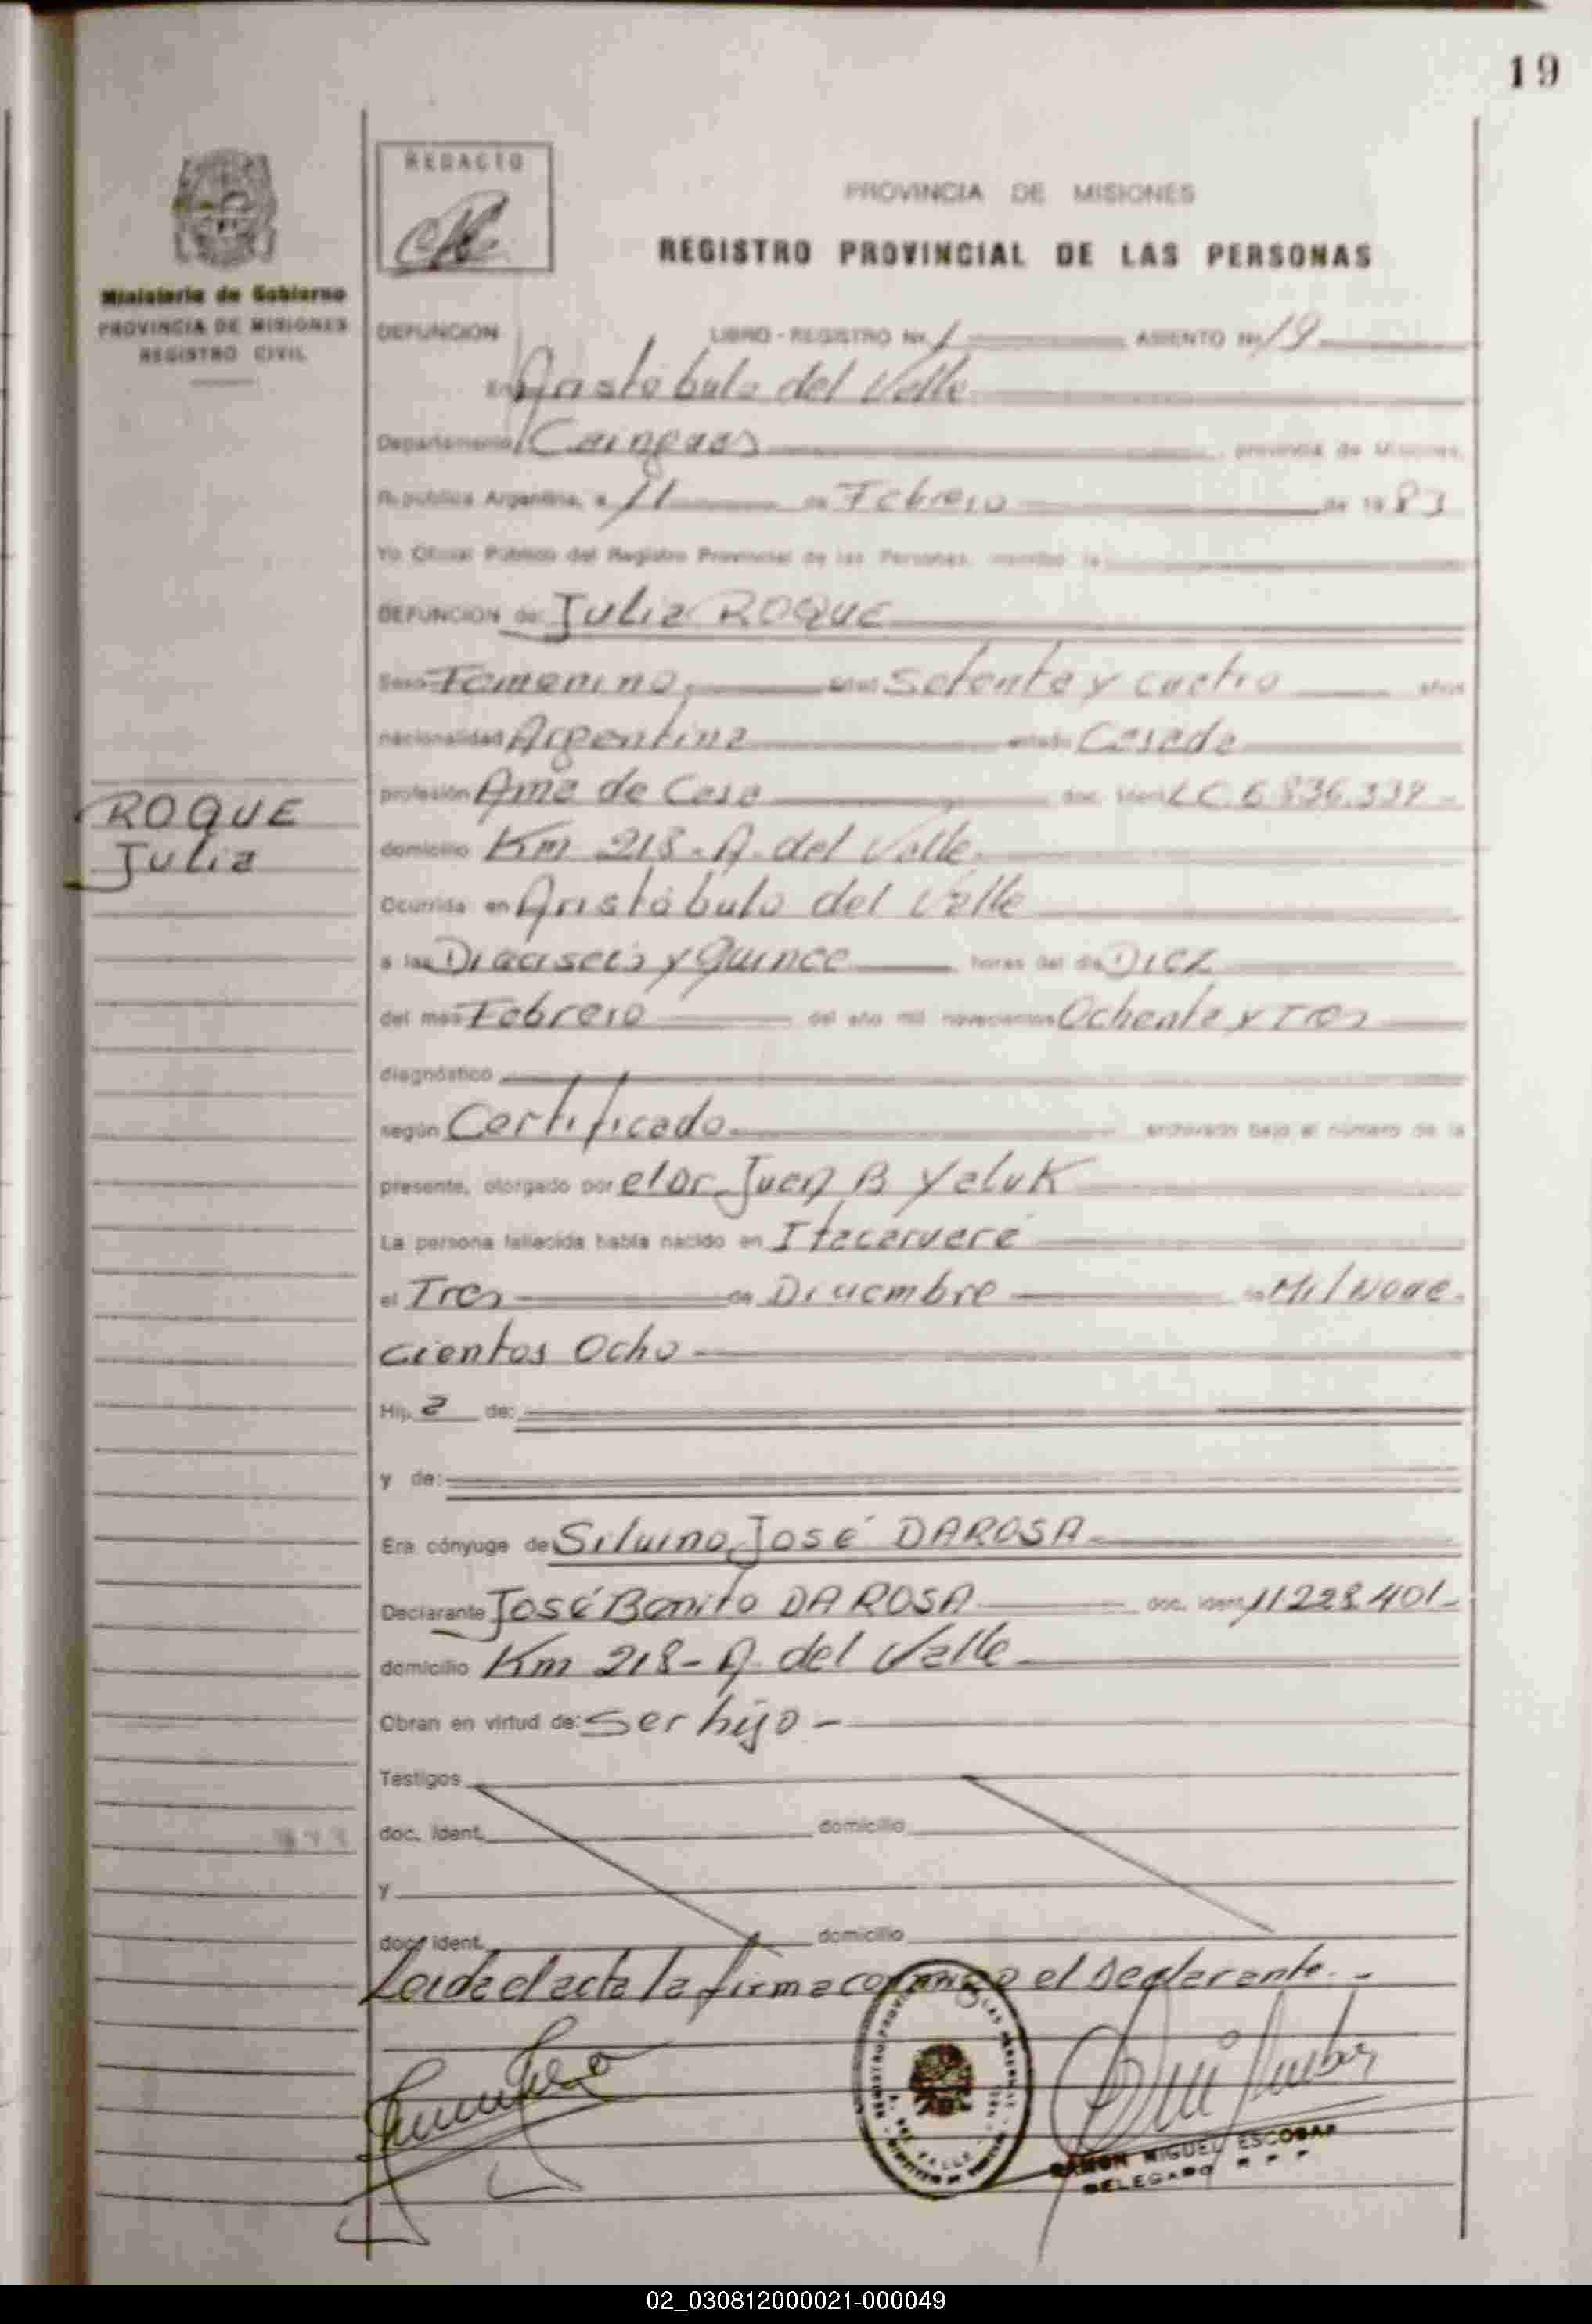 19
REDACTO
PROVINCIA DE MISIONES
REGISTRO PROVINCIAL DE LAS PERSONAS
Ministerio de Gobierno
PROVINCIA DE MISIONES
REGISTRO CIVIL
DEFUNCION LIBRO - REGISTRO No. 1 ASIENTO No. 19
En Aristóbulo del Valle
Departamento Cainguas provincia de Misiones,
República Argentina, a 11 de Febrero de 1983
Yo Oficial Público del Registro Provincial de las Personas, inscribo la
DEFUNCION de: Julia ROQUE
Sexo Femenino, edad Setenta y cuatro años
nacionalidad Argentina estado Casada
profesión Ama de Casa doc. ident. LC. 6.836.339 -
ROQUE
Julia
domicilio Km 218 - A. del Valle.
Ocurrida en Aristóbulo del Valle
a las Dieciseis y Quince horas del día Diez
del mes Febrero del año mil novecientos Ochenta y Tres
diagnóstico
según Certificado archivado bajo el número de la
presente, otorgado por el Dr. Juan B Yaluk
La persona fallecida había nacido en Itacaruaré
el Tres de Diciembre de Mil Nove-
cientos Ocho
Hija de:
y de:
Era cónyuge de Silvino José DAROSA
Declarante José Benito DA ROSA doc. ident. 11228.401-
domicilio Km 218 - A. del Valle
Obran en virtud de: Ser hijo -
Testigos
doc. ident. domicilio
y
doc. ident. domicilio
Leida el acta la firma conmigo el Declarante. -
RAMON MIGUEL ESCOBAR
DELEGADO R P P
02_030812000021-000049